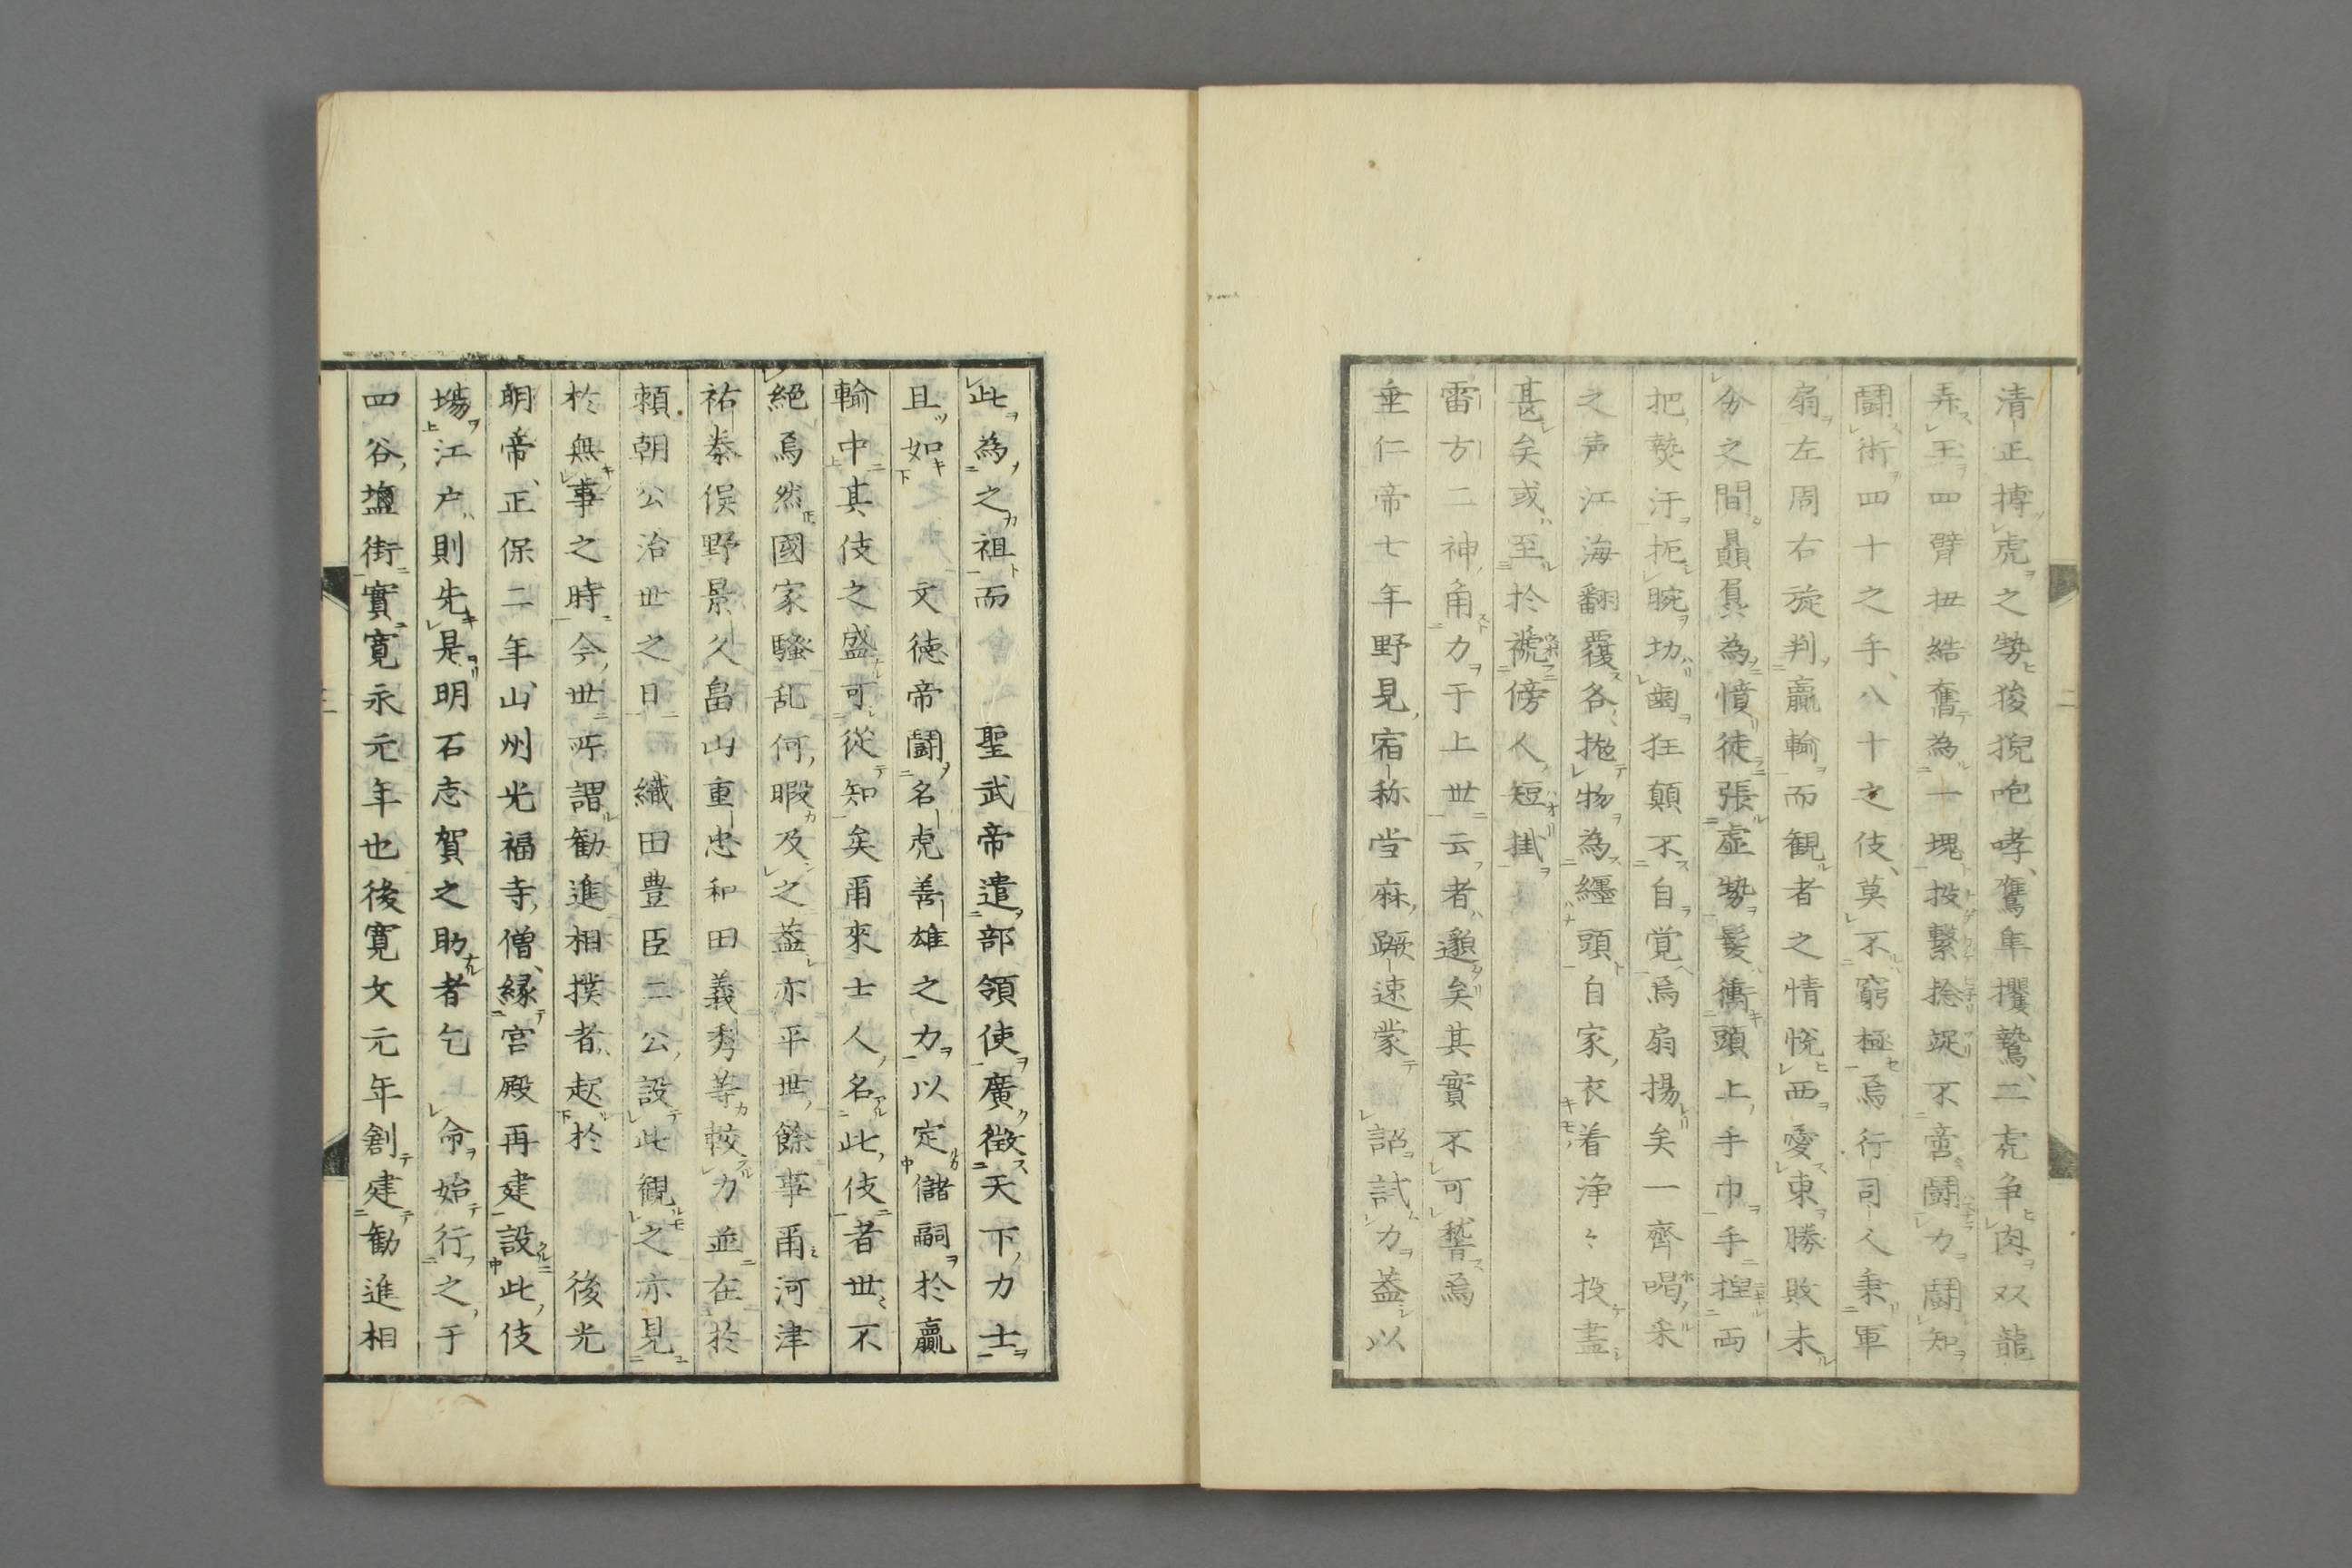 清正搏虎之勢狻猊咆哮、鷹隼攫鷙、二虎争肉双龍
弄玉四臂扭結奮為一塊投繋捻捉不啻闘力闘知
闘術四十之手、八十之伎、莫不窮極焉行司人秉軍
扇左周右旋判贏輸而観者之情悦西愛東勝敗未
分之間贔屓為憤徒張虚勢髪衝頭上、手巾手捏両
把熱汗扼腕切歯狂顛不自覚焉扇揚矣一齊喝采
之声江海翻覆各、抛物為纏頭自家衣着浄々投盡
甚矣或至於褫傍人短掛
雷方二神角力于上世云者邈矣其實不可誓焉
垂仁帝七年野見宿称當麻蹶速蒙　詔試力葢以
此為之祖而　　聖武帝遣部領使廣徴天下力士
且如　　文徳帝闘名虎善雄之力以定儲嗣於贏
輸中其伎之盛可從知矣爾來士人名此伎者世不
絶焉然國家騒乱何暇及之葢亦平世餘事爾河津
祐泰俣野景久畠山重忠和田義秀等較力並在於
頼朝公治世之日　織田豊臣二公設此観之亦見
於無事之時今世所謂勧進相撲者起於　　後光
明帝、正保二年、山州光福寺僧、縁宮殿再建設此伎
塲江戸則先是明石志賀之助者乞　命始行之于
四谷塩街實寛永元年也後寛文元年創建勧進相